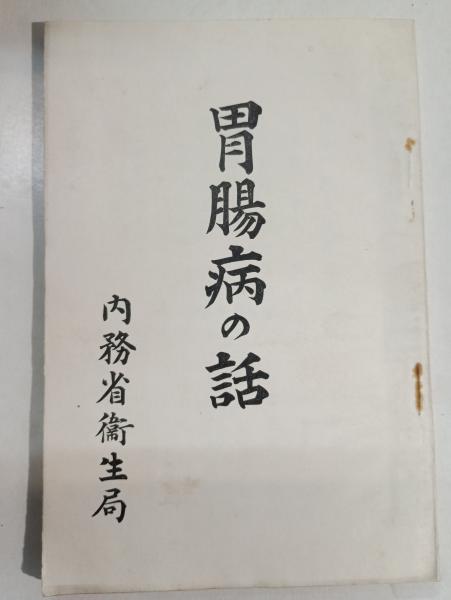 胃腸病の話
内務省衞生局